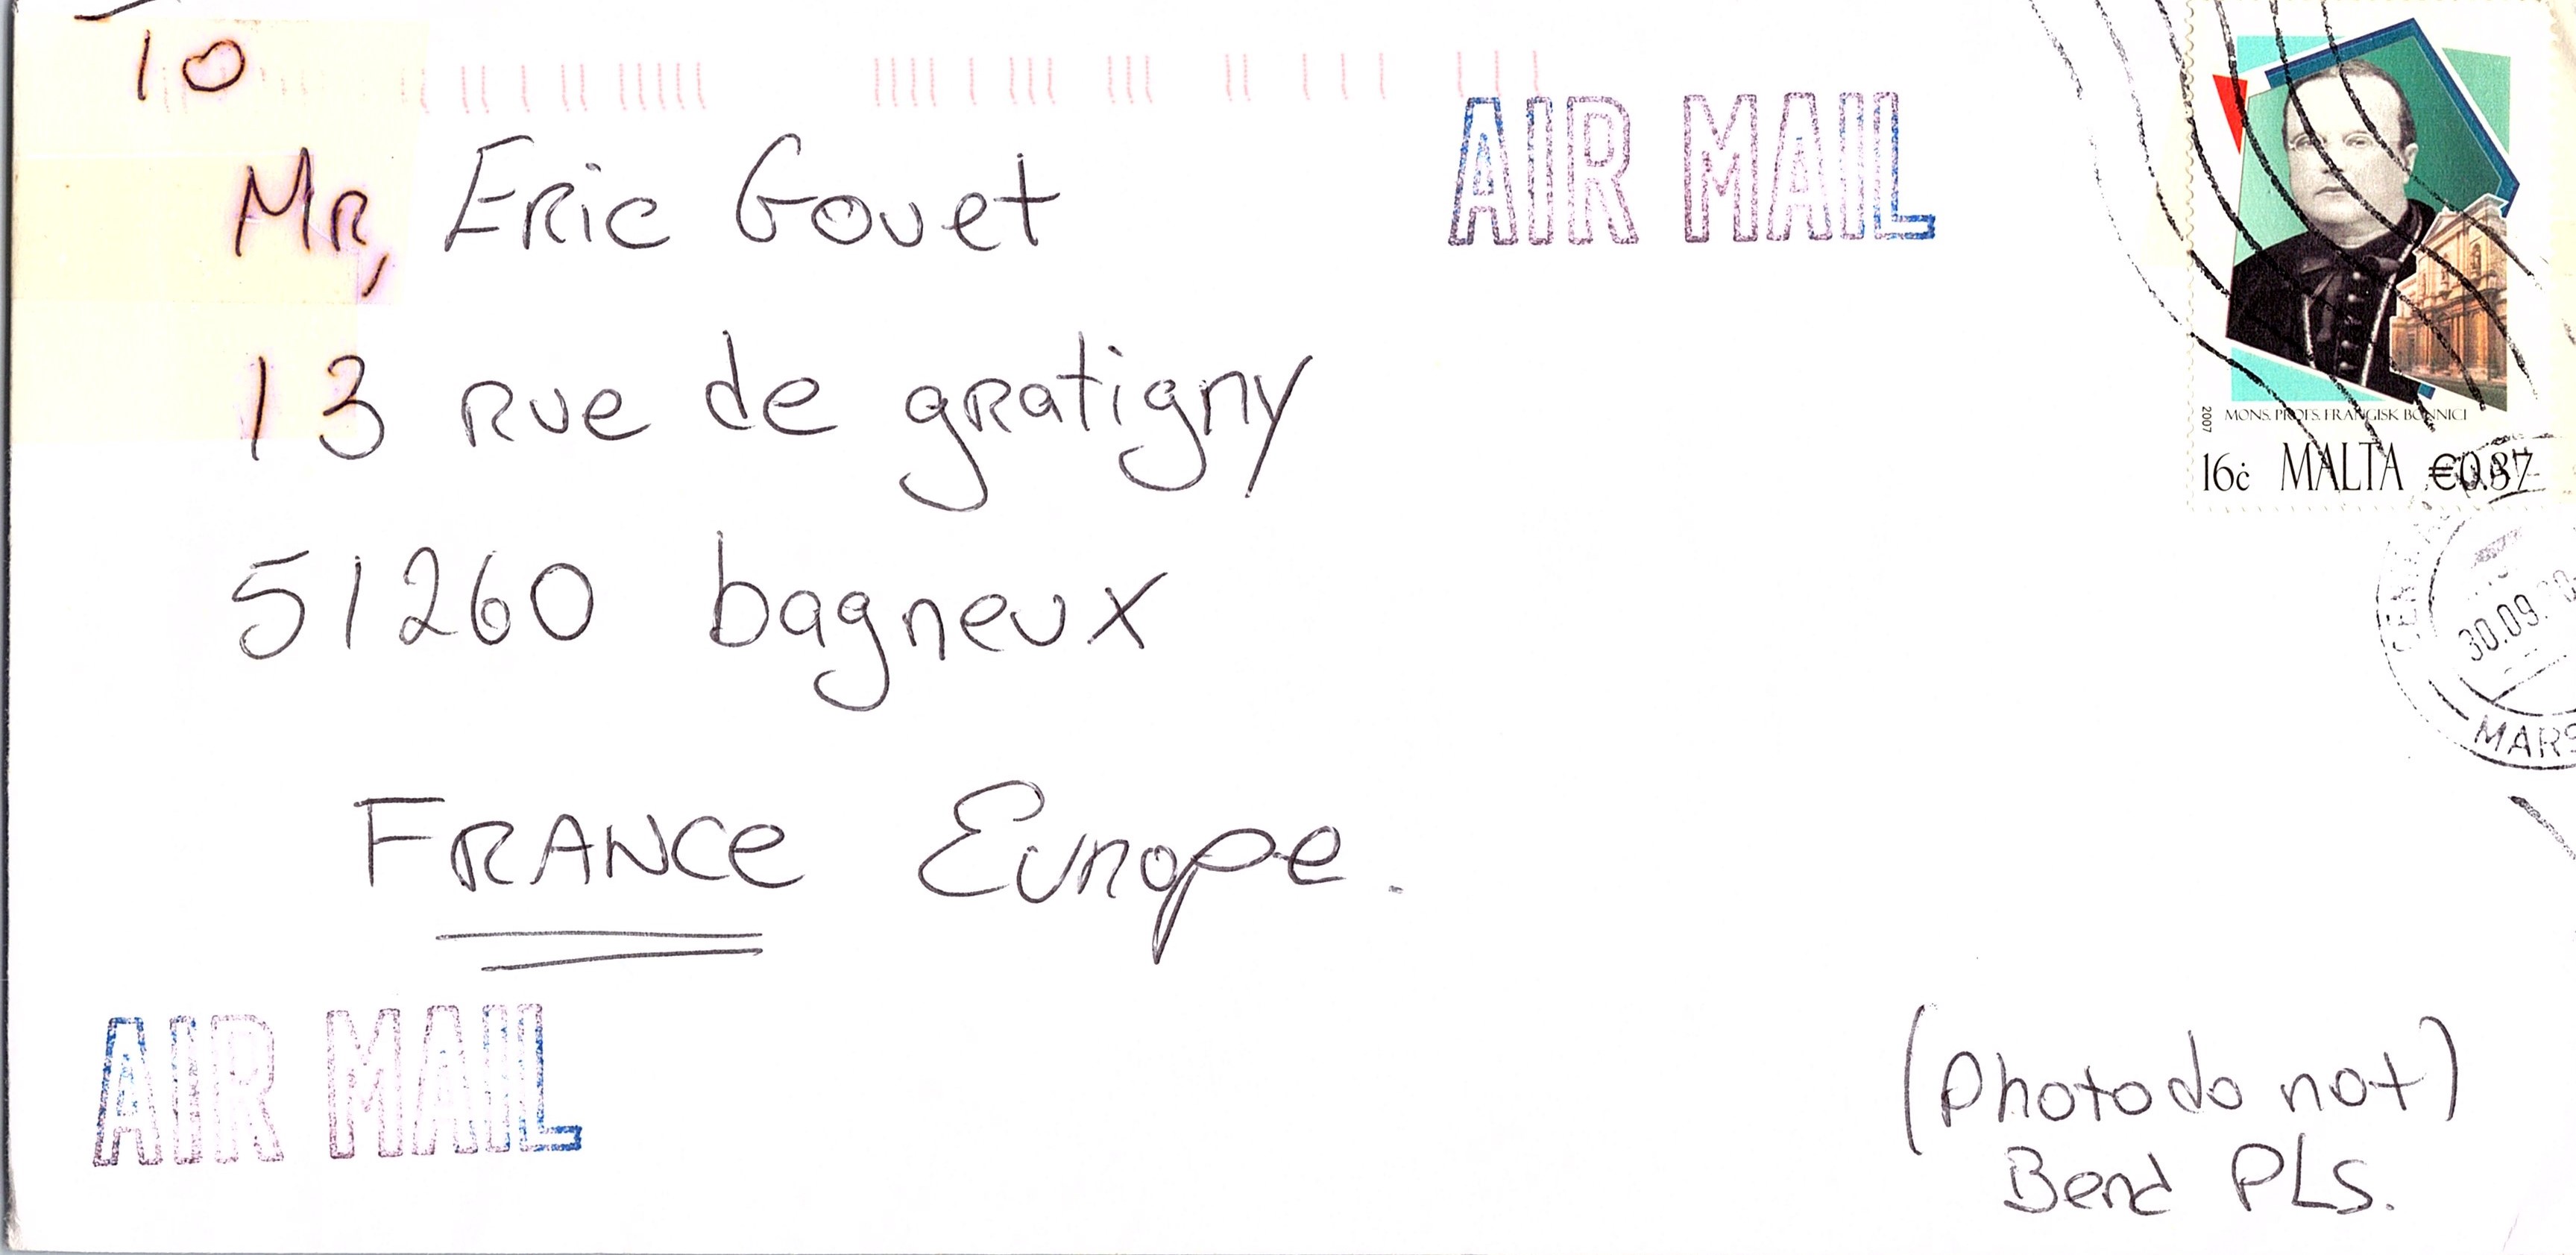 To
AIR MAIL
Mr, Eric Gouet
13 rue de gratigny
51260 bagneux
FRANCE Europe.
AIR MAIL
(Photo do not)
Bend PLS.
2007
MONS. PROFS. FRANGISK BONNICI
16ċ MALTA €0.37
30.09.
MARS